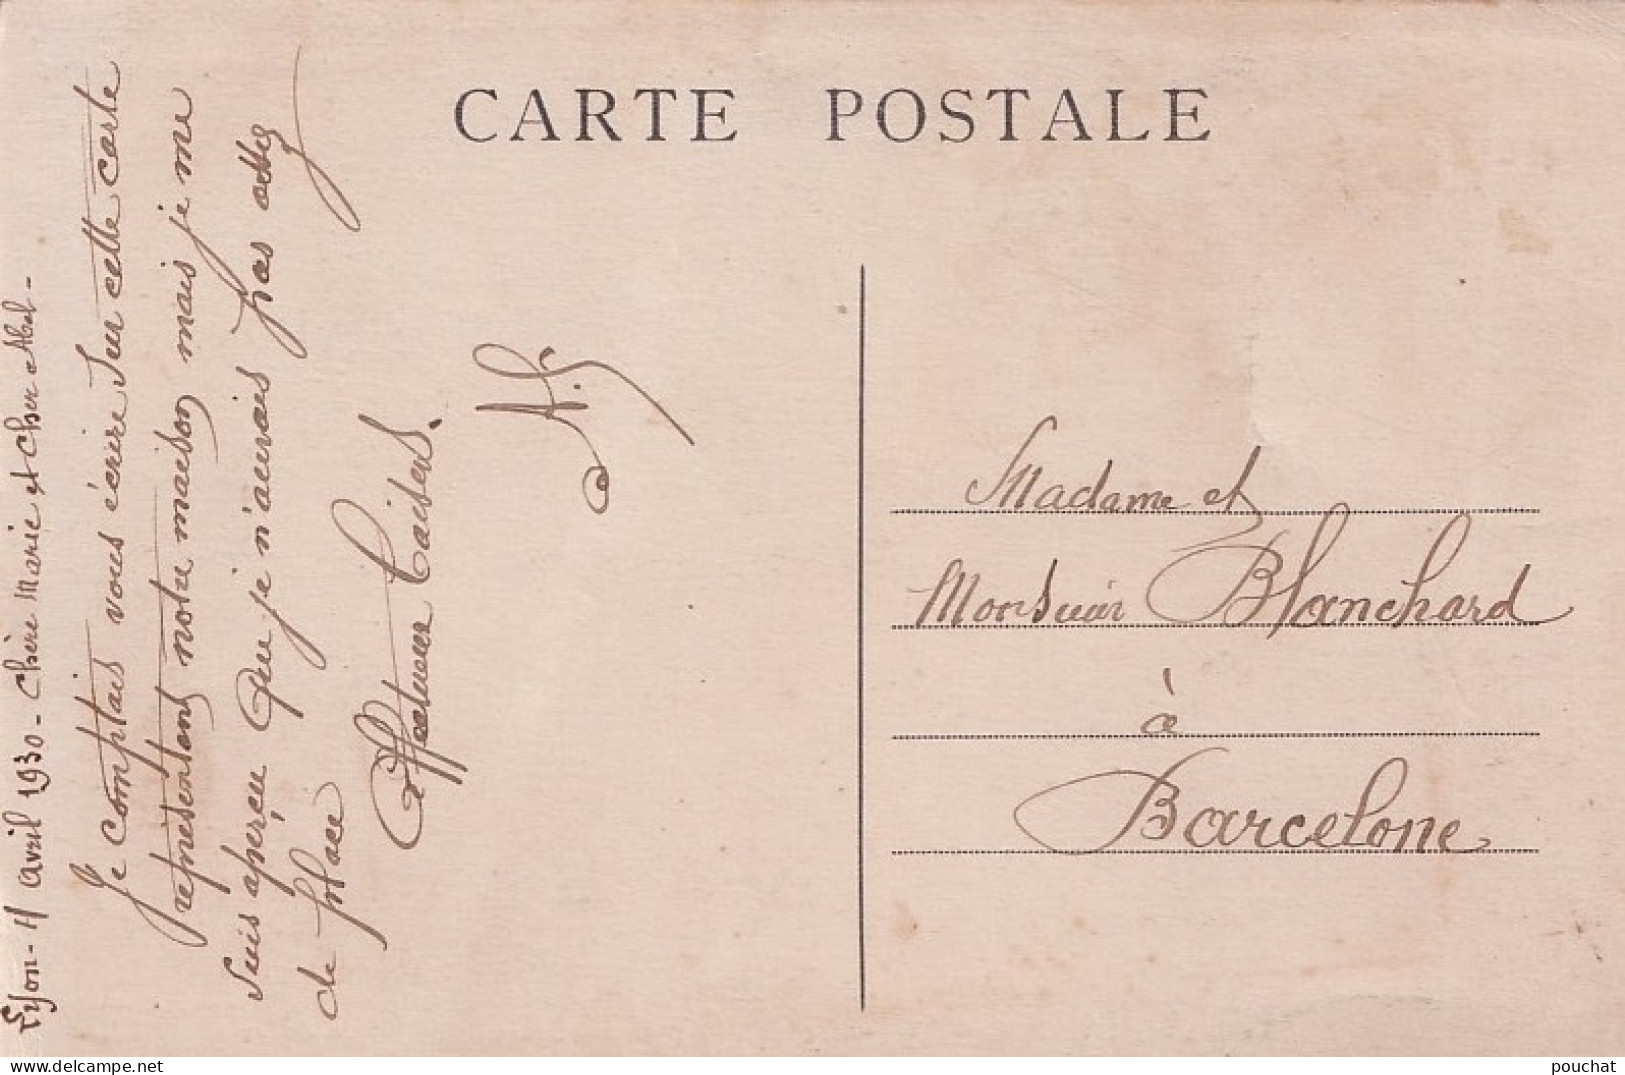 CARTE POSTALE
Lyon - 11 avril 1930 - Chère Marie et Cher Abel -
Je comptais vous écrire sur cette carte
représentant notre maison mais je me
suis aperçu que je n'aurais pas assez
de place
Affectueux baisers.
Madame et
Monsieur Blanchard
à
Barcelone
delcampe.net
pouchat